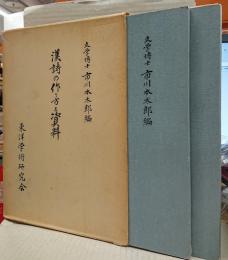 文学博士 市川本太郎編
漢詩の作り方と資料
東洋学術研究会
文学博士 市川本太郎編